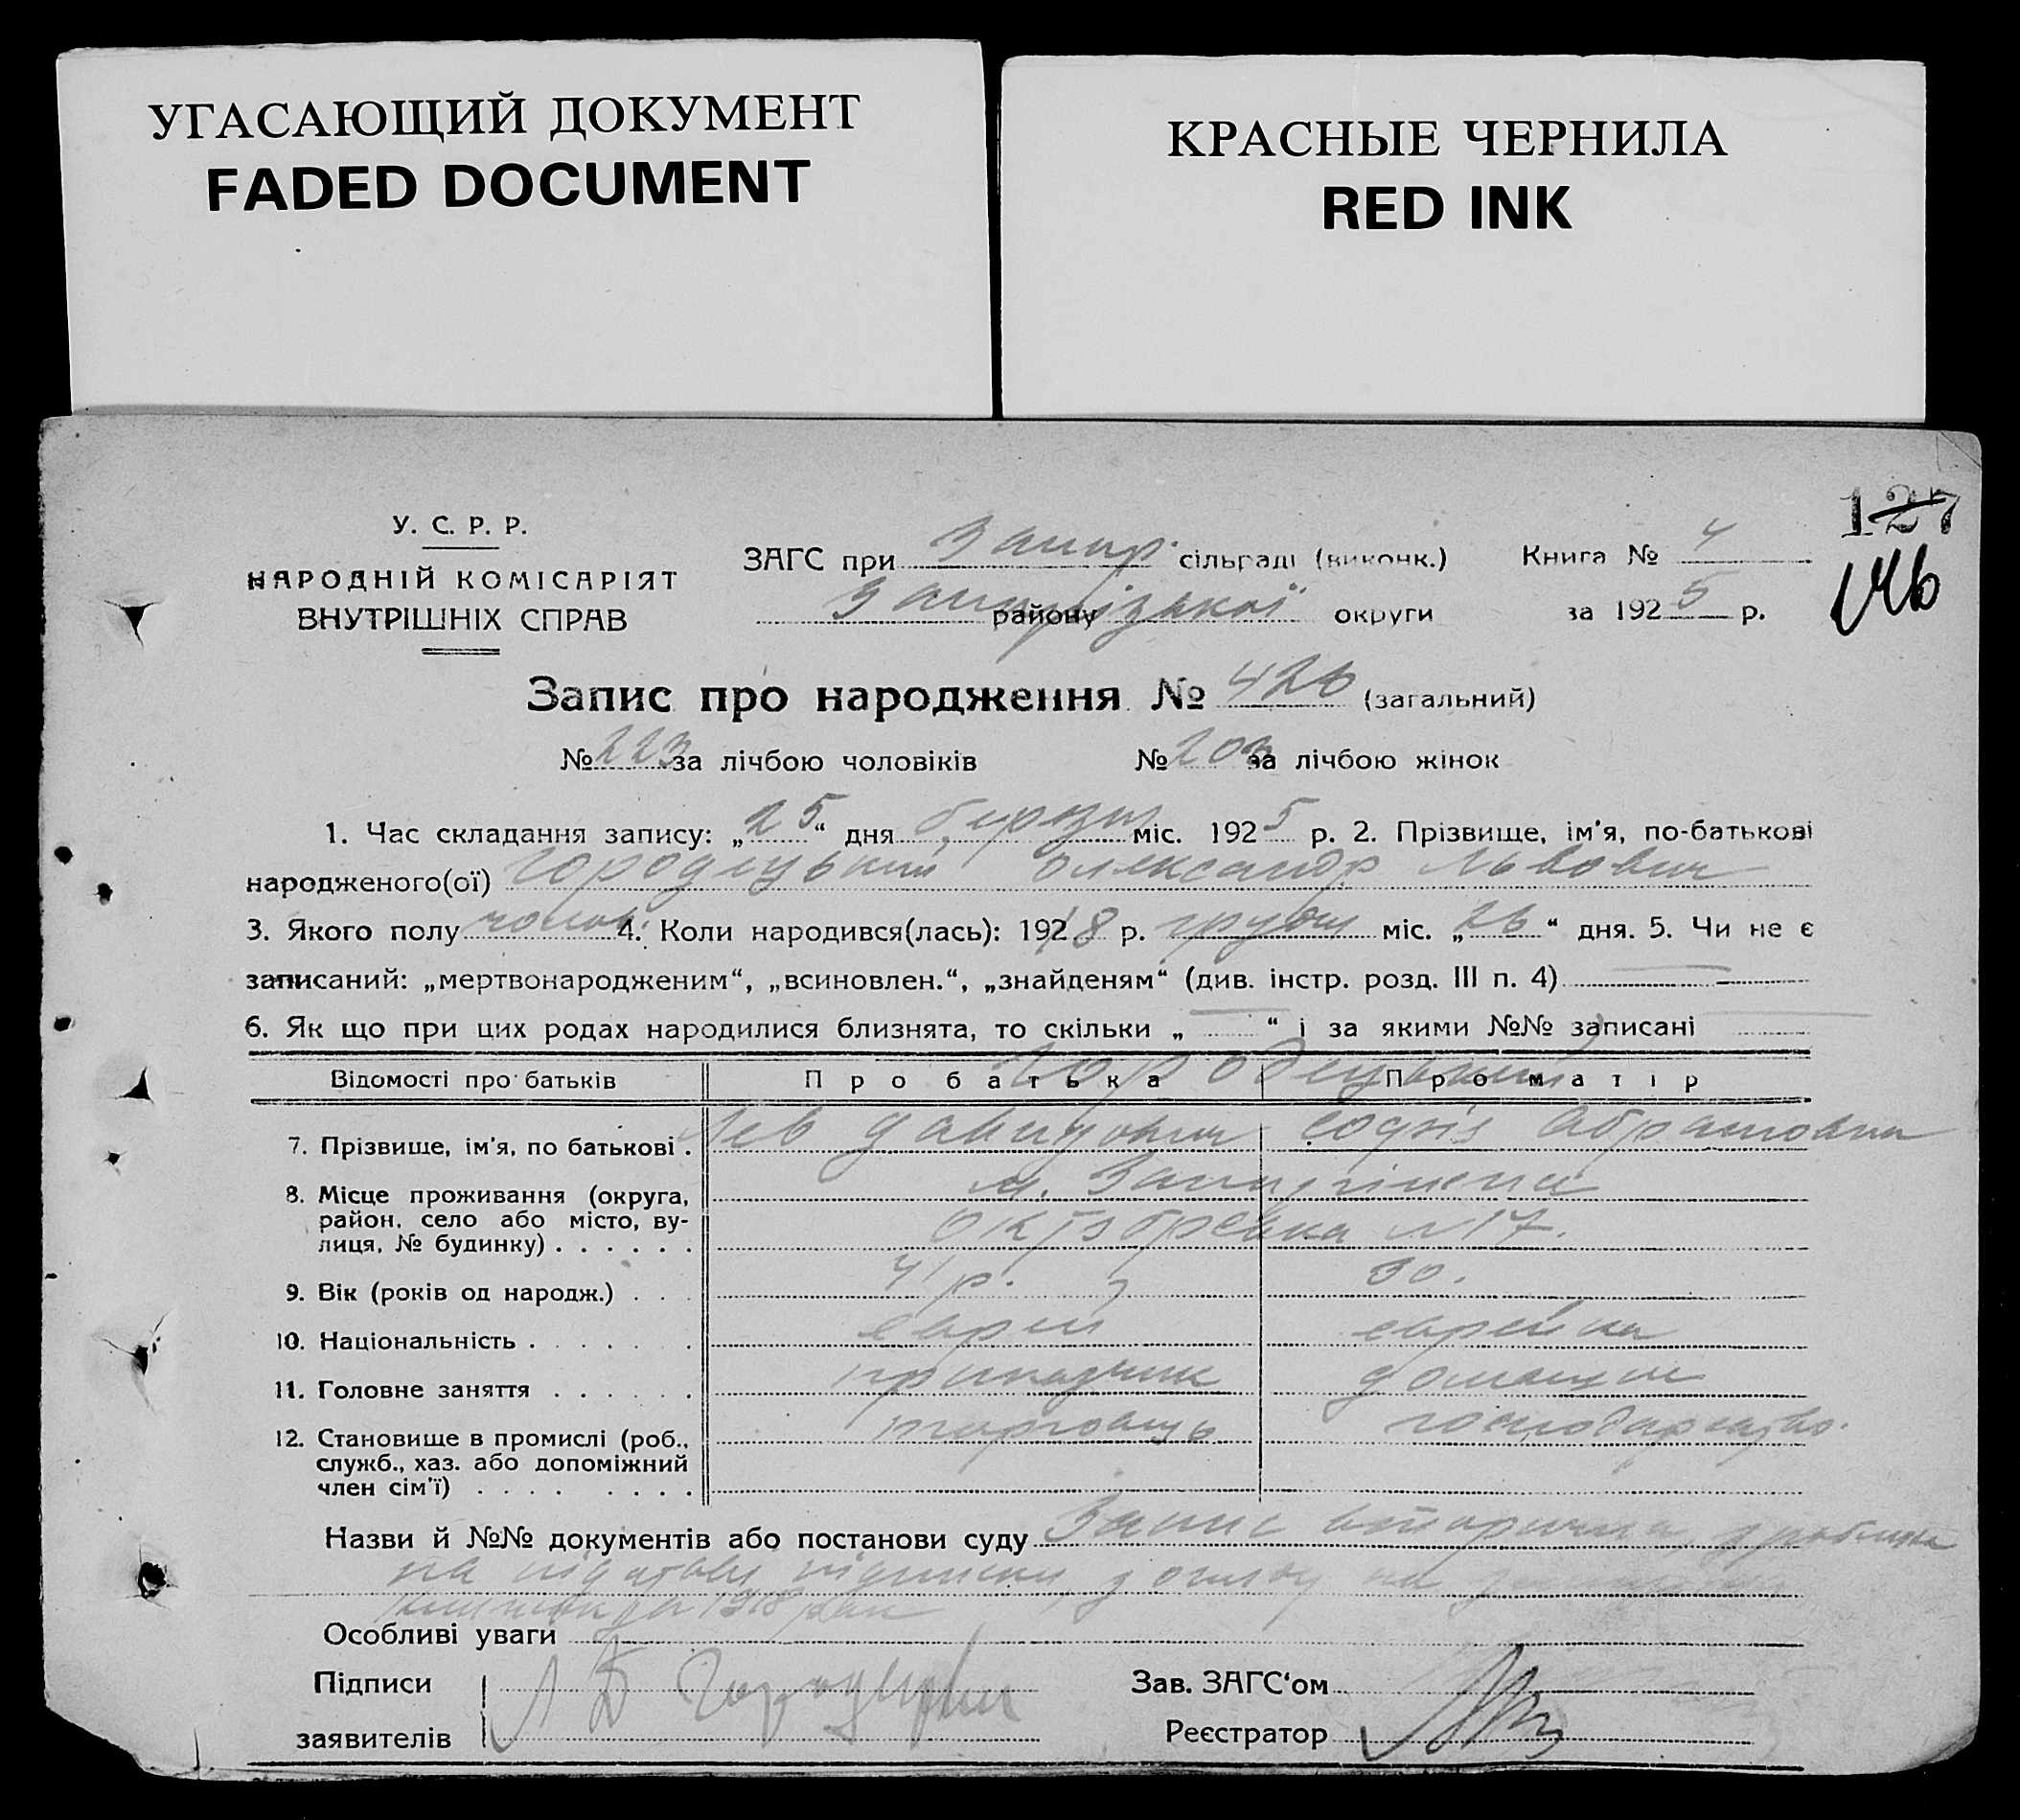 УГАСАЮЩИЙ ДОКУМЕНТ
FADED DOCUMENT
КРАСНЫЕ ЧЕРНИЛА
RED INK
127
146
У. С. Р. Р.
НАРОДНІЙ КОМІСАРІЯТ
ВНУТРІШНІХ СПРАВ
ЗАГС при Запор. сільраді (виконк.) Книга № 4
району Запорізької округи за 1925 р.
Запис про народження № 426 (загальний)
№ 223 за лічбою чоловіків № 203 за лічбою жінок
1. Час складання запису: „25“ дня березня міс. 1925 р. 2. Прізвище, ім'я, по-батькові
народженого(ої) Городецький Олександр Львович
3. Якого полу чолов. 4. Коли народився(лась): 1918 р. грудня міс. „26“ дня. 5. Чи не є
записаний: „мертвонародженим“, „всиновлен.“, „знайденям“ (див. інстр. розд. III п. 4)
6. Як що при цих родах народилися близнята, то скільки „ “ і за якими №№ записані
Відомості про батьків Про батька Про матір
Городецький
7. Прізвище, ім'я, по батькові . Лев Давидович Софія Абрамовна
8. Місце проживання (округа, м. Запоріжжя
район, село або місто, ву-
лиця, № будинку) . . . . . . Октябревка № 17.
9. Вік (років од народж.) . . . 41 р. 30.
10. Національність . . . . . . . еврей еврейка
11. Головне заняття . . . . . . прикащик домашн
12. Становище в промислі (роб., торговець господарство.
служб., хаз. або допоміжний
член сім'ї) . . . . . . . .
Назви й №№ документів або постанови суду Запис вторична, зроблена
на підставі на
1918
Особливі уваги
Підписи Л Городецький Зав. ЗАГС‘ом
заявителів Реєстратор